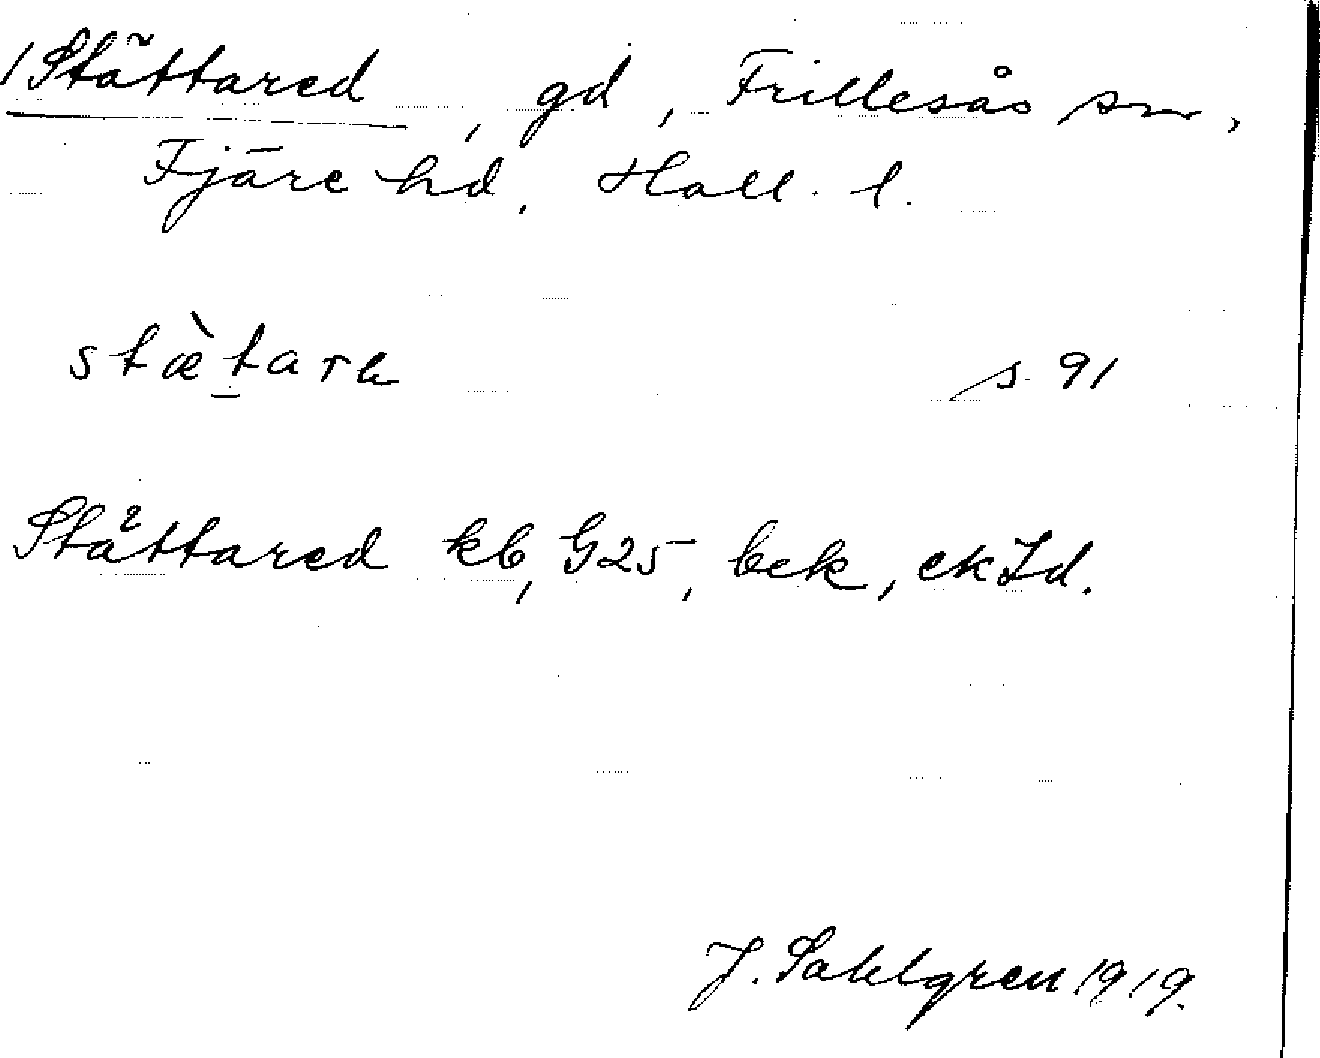 1 Stättared, gd, Frillesås sn,
Fjäre hd, Hall. l.
stæ̀tarə s. 91
Stättared kb, G25, bek, ekId.
J. Sahlgren 1919.